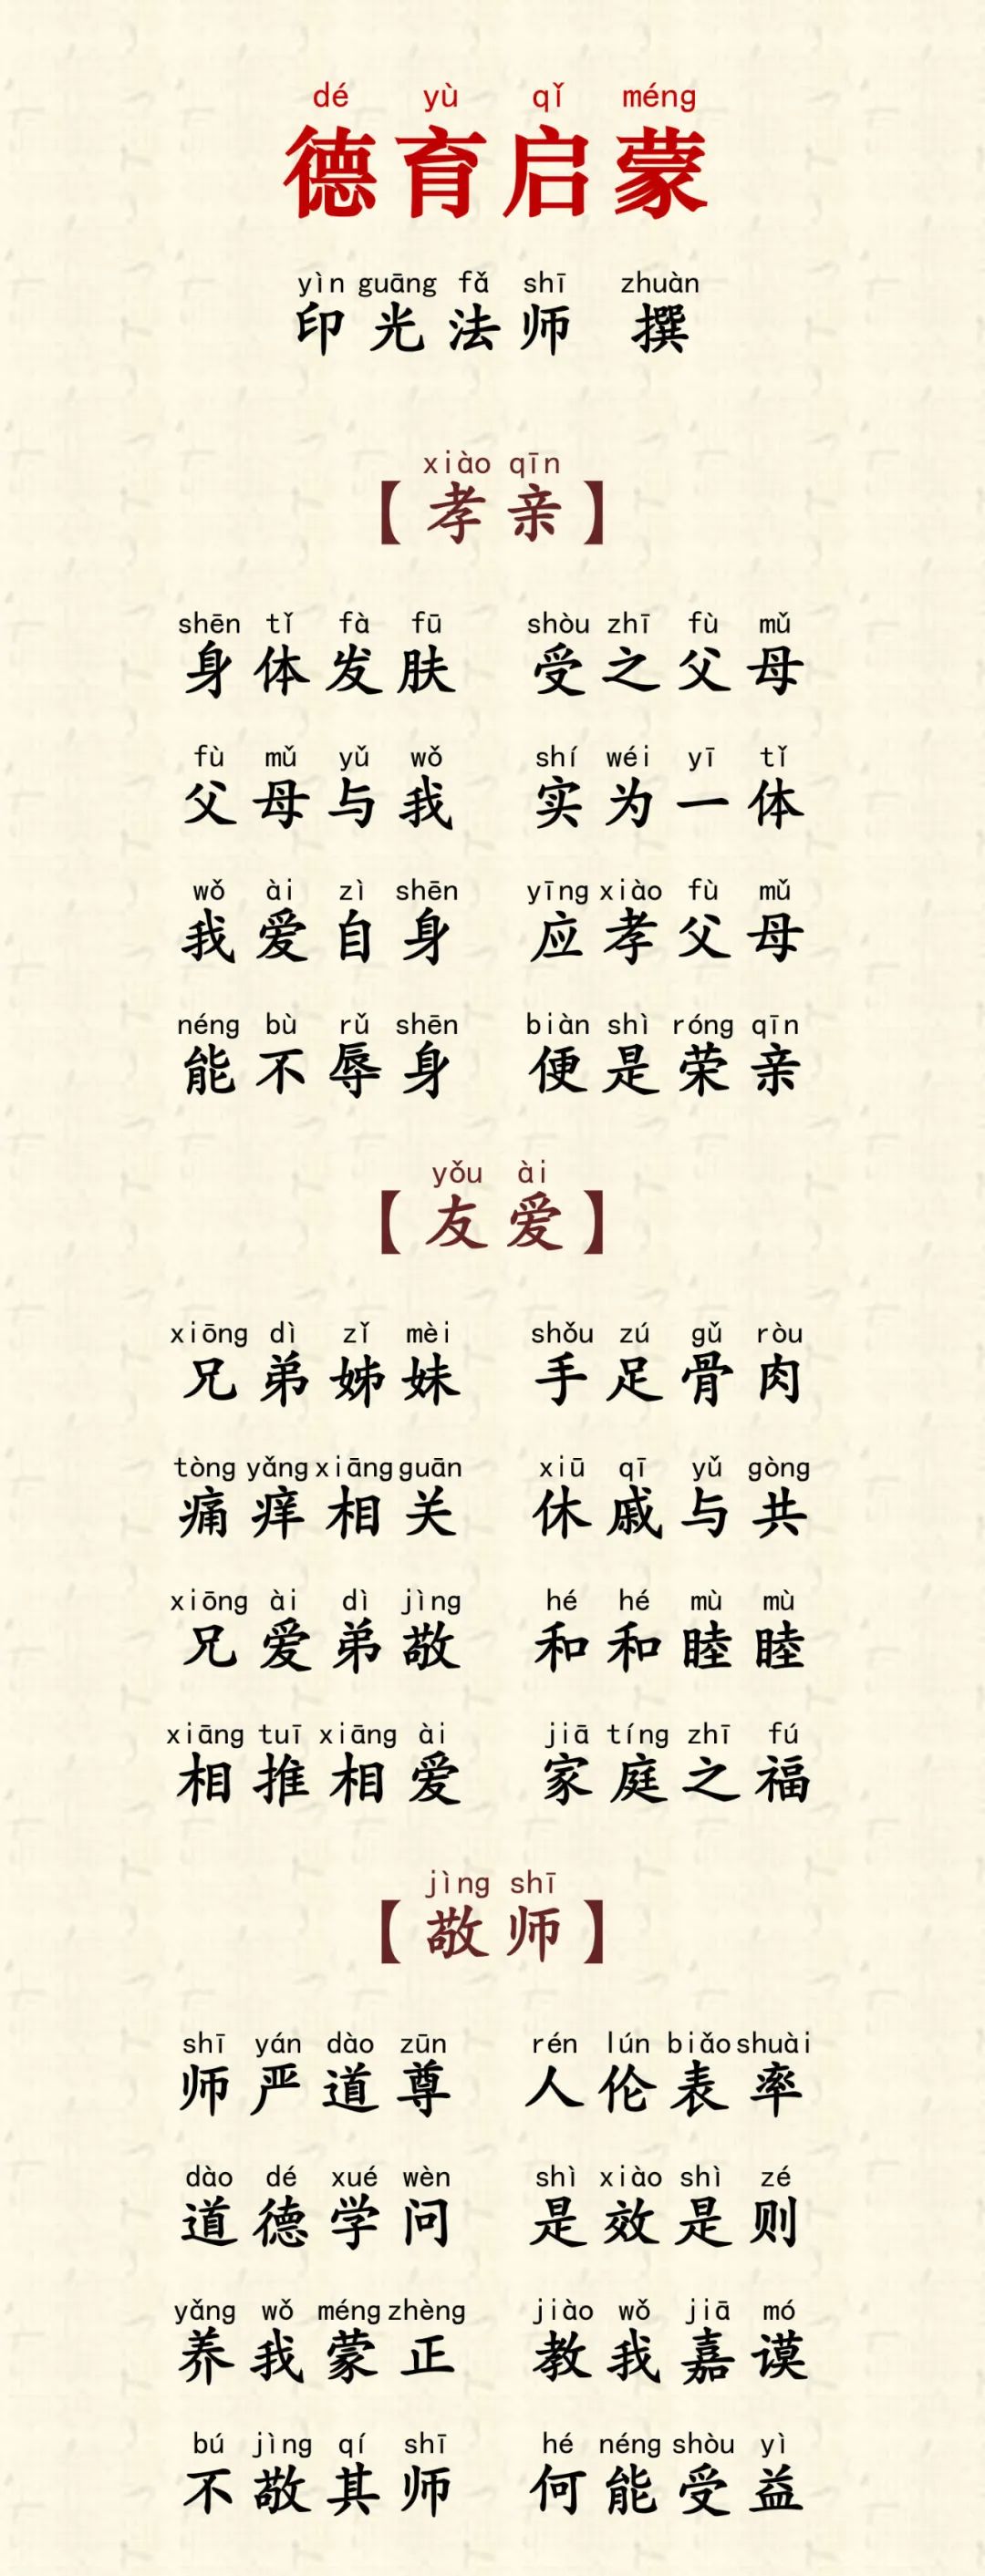 dé yù qǐ méng
德育启蒙
yìn guāng fǎ shī zhuàn
印光法师 撰
xiào qīn
【孝亲】
shēn tǐ fà fū shòu zhī fù mǔ
身体发肤 受之父母
fù mǔ yǔ wǒ shí wéi yī tǐ
父母与我 实为一体
wǒ ài zì shēn yīng xiào fù mǔ
我爱自身 应孝父母
néng bù rǔ shēn biàn shì róng qīn
能不辱身 便是荣亲
yǒu ài
【友爱】
xiōng dì zǐ mèi shǒu zú gǔ ròu
兄弟姊妹 手足骨肉
tòng yǎng xiāng guān xiū qī yǔ gòng
痛痒相关 休戚与共
xiōng ài dì jìng hé hé mù mù
兄爱弟敬 和和睦睦
xiāng tuī xiāng ài jiā tíng zhī fú
相推相爱 家庭之福
jìng shī
【敬师】
shī yán dào zūn rén lún biǎo shuài
师严道尊 人伦表率
dào dé xué wèn shì xiào shì zé
道德学问 是效是则
yǎng wǒ méng zhèng jiào wǒ jiā mó
养我蒙正 教我嘉谟
bú jìng qí shī hé néng shòu yì
不敬其师 何能受益